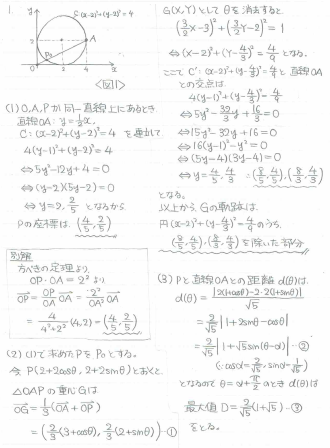 1.
y
C: (x-2)²+(y-2)²=4
2
P₀
A
0
2
4
x
<図1>
(1) O, A, P が同一直線上にあるとき、
直線OA: y=½x,
C: (x-2)²+(y-2)²=4 を連立して
4(y-1)²+(y-2)²=4
⇔ 5y²-12y+4=0
⇔ (y-2)(5y-2)=0
⇔ y=2, 2/5 となるから
Pの座標は (4/5, 2/5)
別解
方べきの定理より、
OP・OA=2² より
OP→ = OP/OA OA→ = 2²/OA² OA→
= 4/(4²+2²) (4,2) = (4/5, 2/5)
(2) (1)で求めたPをP₀とする。
今 P(2+2cosθ, 2+2sinθ)とおくと、
△OAPの重心Gは
OG→ = 1/3 (OA→+OP→)
= (2/3(3+cosθ), 2/3(2+sinθ)) ―①
G(X,Y)として θを消去すると
(3/2X-3)²+(3/2Y-2)²=1
⇔ (X-2)²+(Y-4/3)²=4/9 となる。
ここで C': (x-2)²+(y-4/3)²=4/9 と直線OA
との交点は
4(y-1)²+(y-4/3)²=4/9
⇔ 5y²-32/3y+16/3=0
⇔ 15y²-32y+16=0
⇔ 16(y-1)²-y²=0
⇔ (5y-4)(3y-4)=0
⇔ y=4/5, 4/3 ∴ (8/5, 4/5), (8/3, 4/3)
となる。
以上から、Gの軌跡は
円(x-2)²+(y-4/3)²=4/9 のうち、
(8/5, 4/5), (8/3, 4/3) を除いた部分
(3) Pと直線OAとの距離 d(θ)は
d(θ) = |2(1+cosθ)-2・2(1+sinθ)|/√5
= 2/√5 |1+2sinθ-cosθ|
= 2/√5 |1+√5sin(θ-α)| ―②
(∵ cosα=2/√5, sinα=1/√5)
となるので θ=α+π/2 のとき d(θ)は
最大値 D=2/√5(1+√5) ―③
をとる。